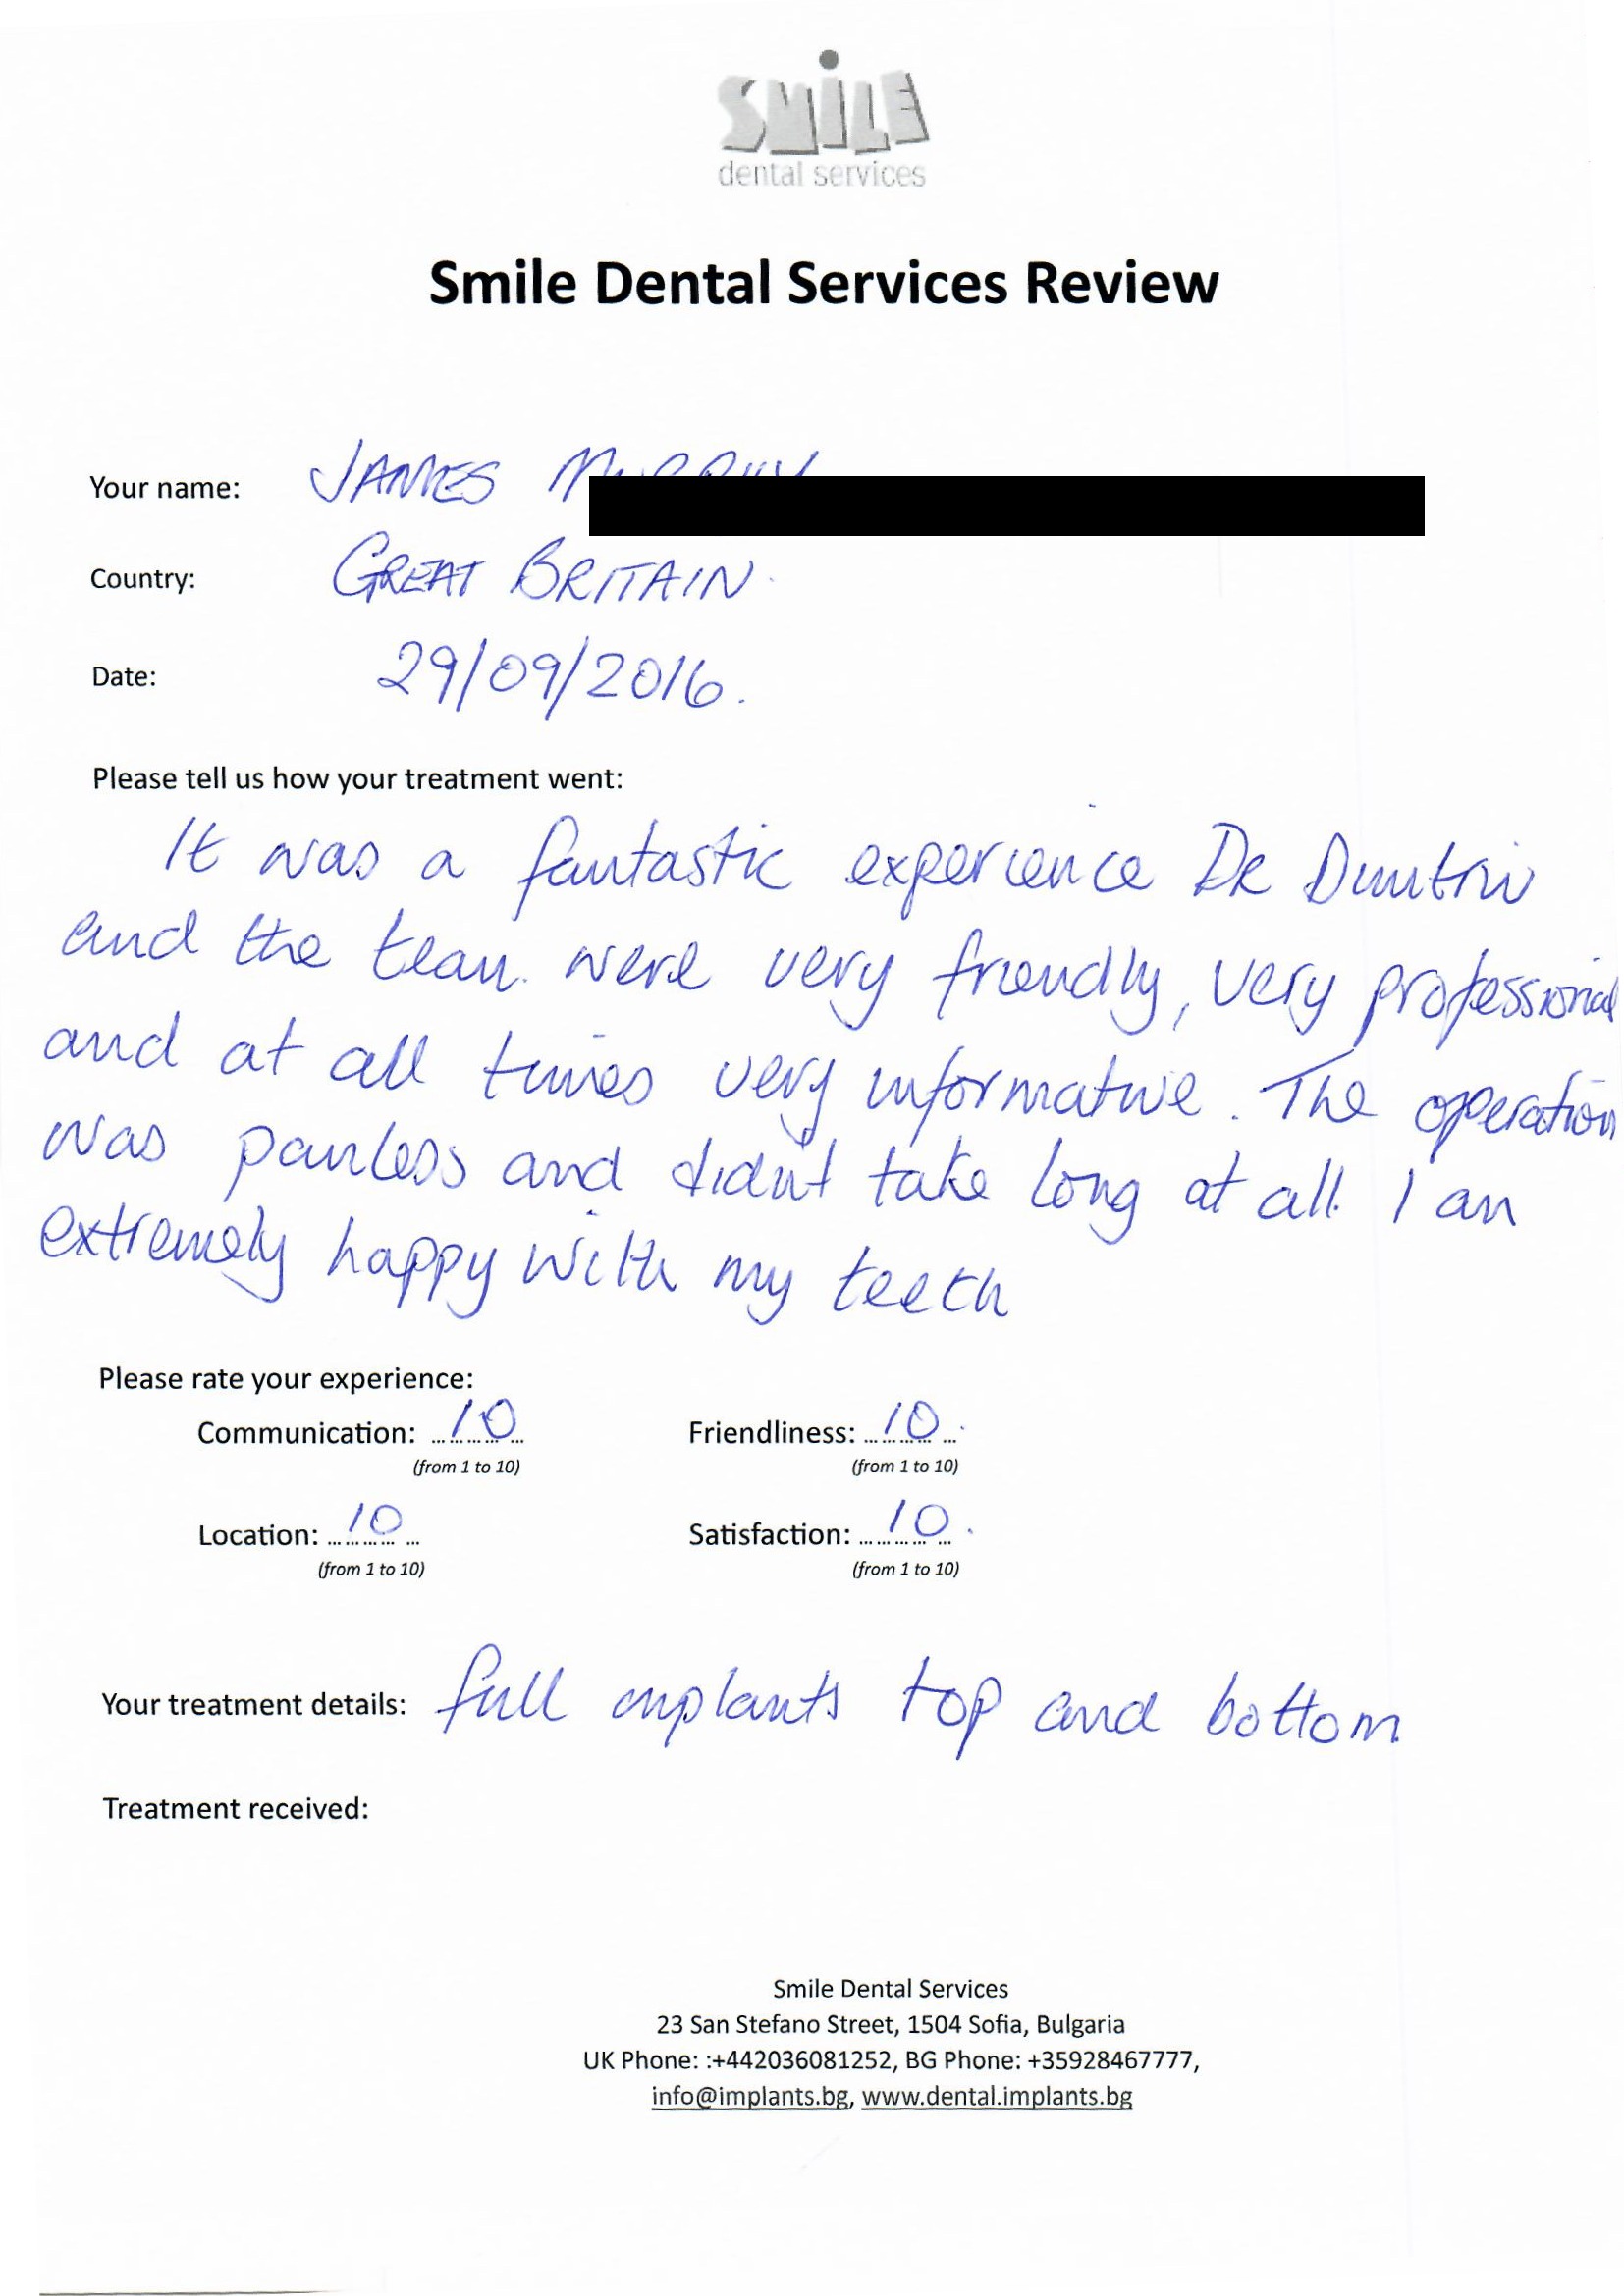 SMiLE
dental services
Smile Dental Services Review
Your name: JAMES
Country: GREAT BRITAIN.
Date: 29/09/2016.
Please tell us how your treatment went:
It was a fantastic experience DR
and the team were very friendly, very professional
and at all times very informative. The operation
was painless and didn't take long at all. I am
extremely happy with my teeth
Please rate your experience:
Communication: 10 Friendliness: 10.
(from 1 to 10) (from 1 to 10)
Location: 10 Satisfaction: 10.
(from 1 to 10) (from 1 to 10)
Your treatment details: full implants top and bottom
Treatment received:
Smile Dental Services
23 San Stefano Street, 1504 Sofia, Bulgaria
UK Phone: :+442036081252, BG Phone: +35928467777,
info@implants.bg, www.dental.implants.bg